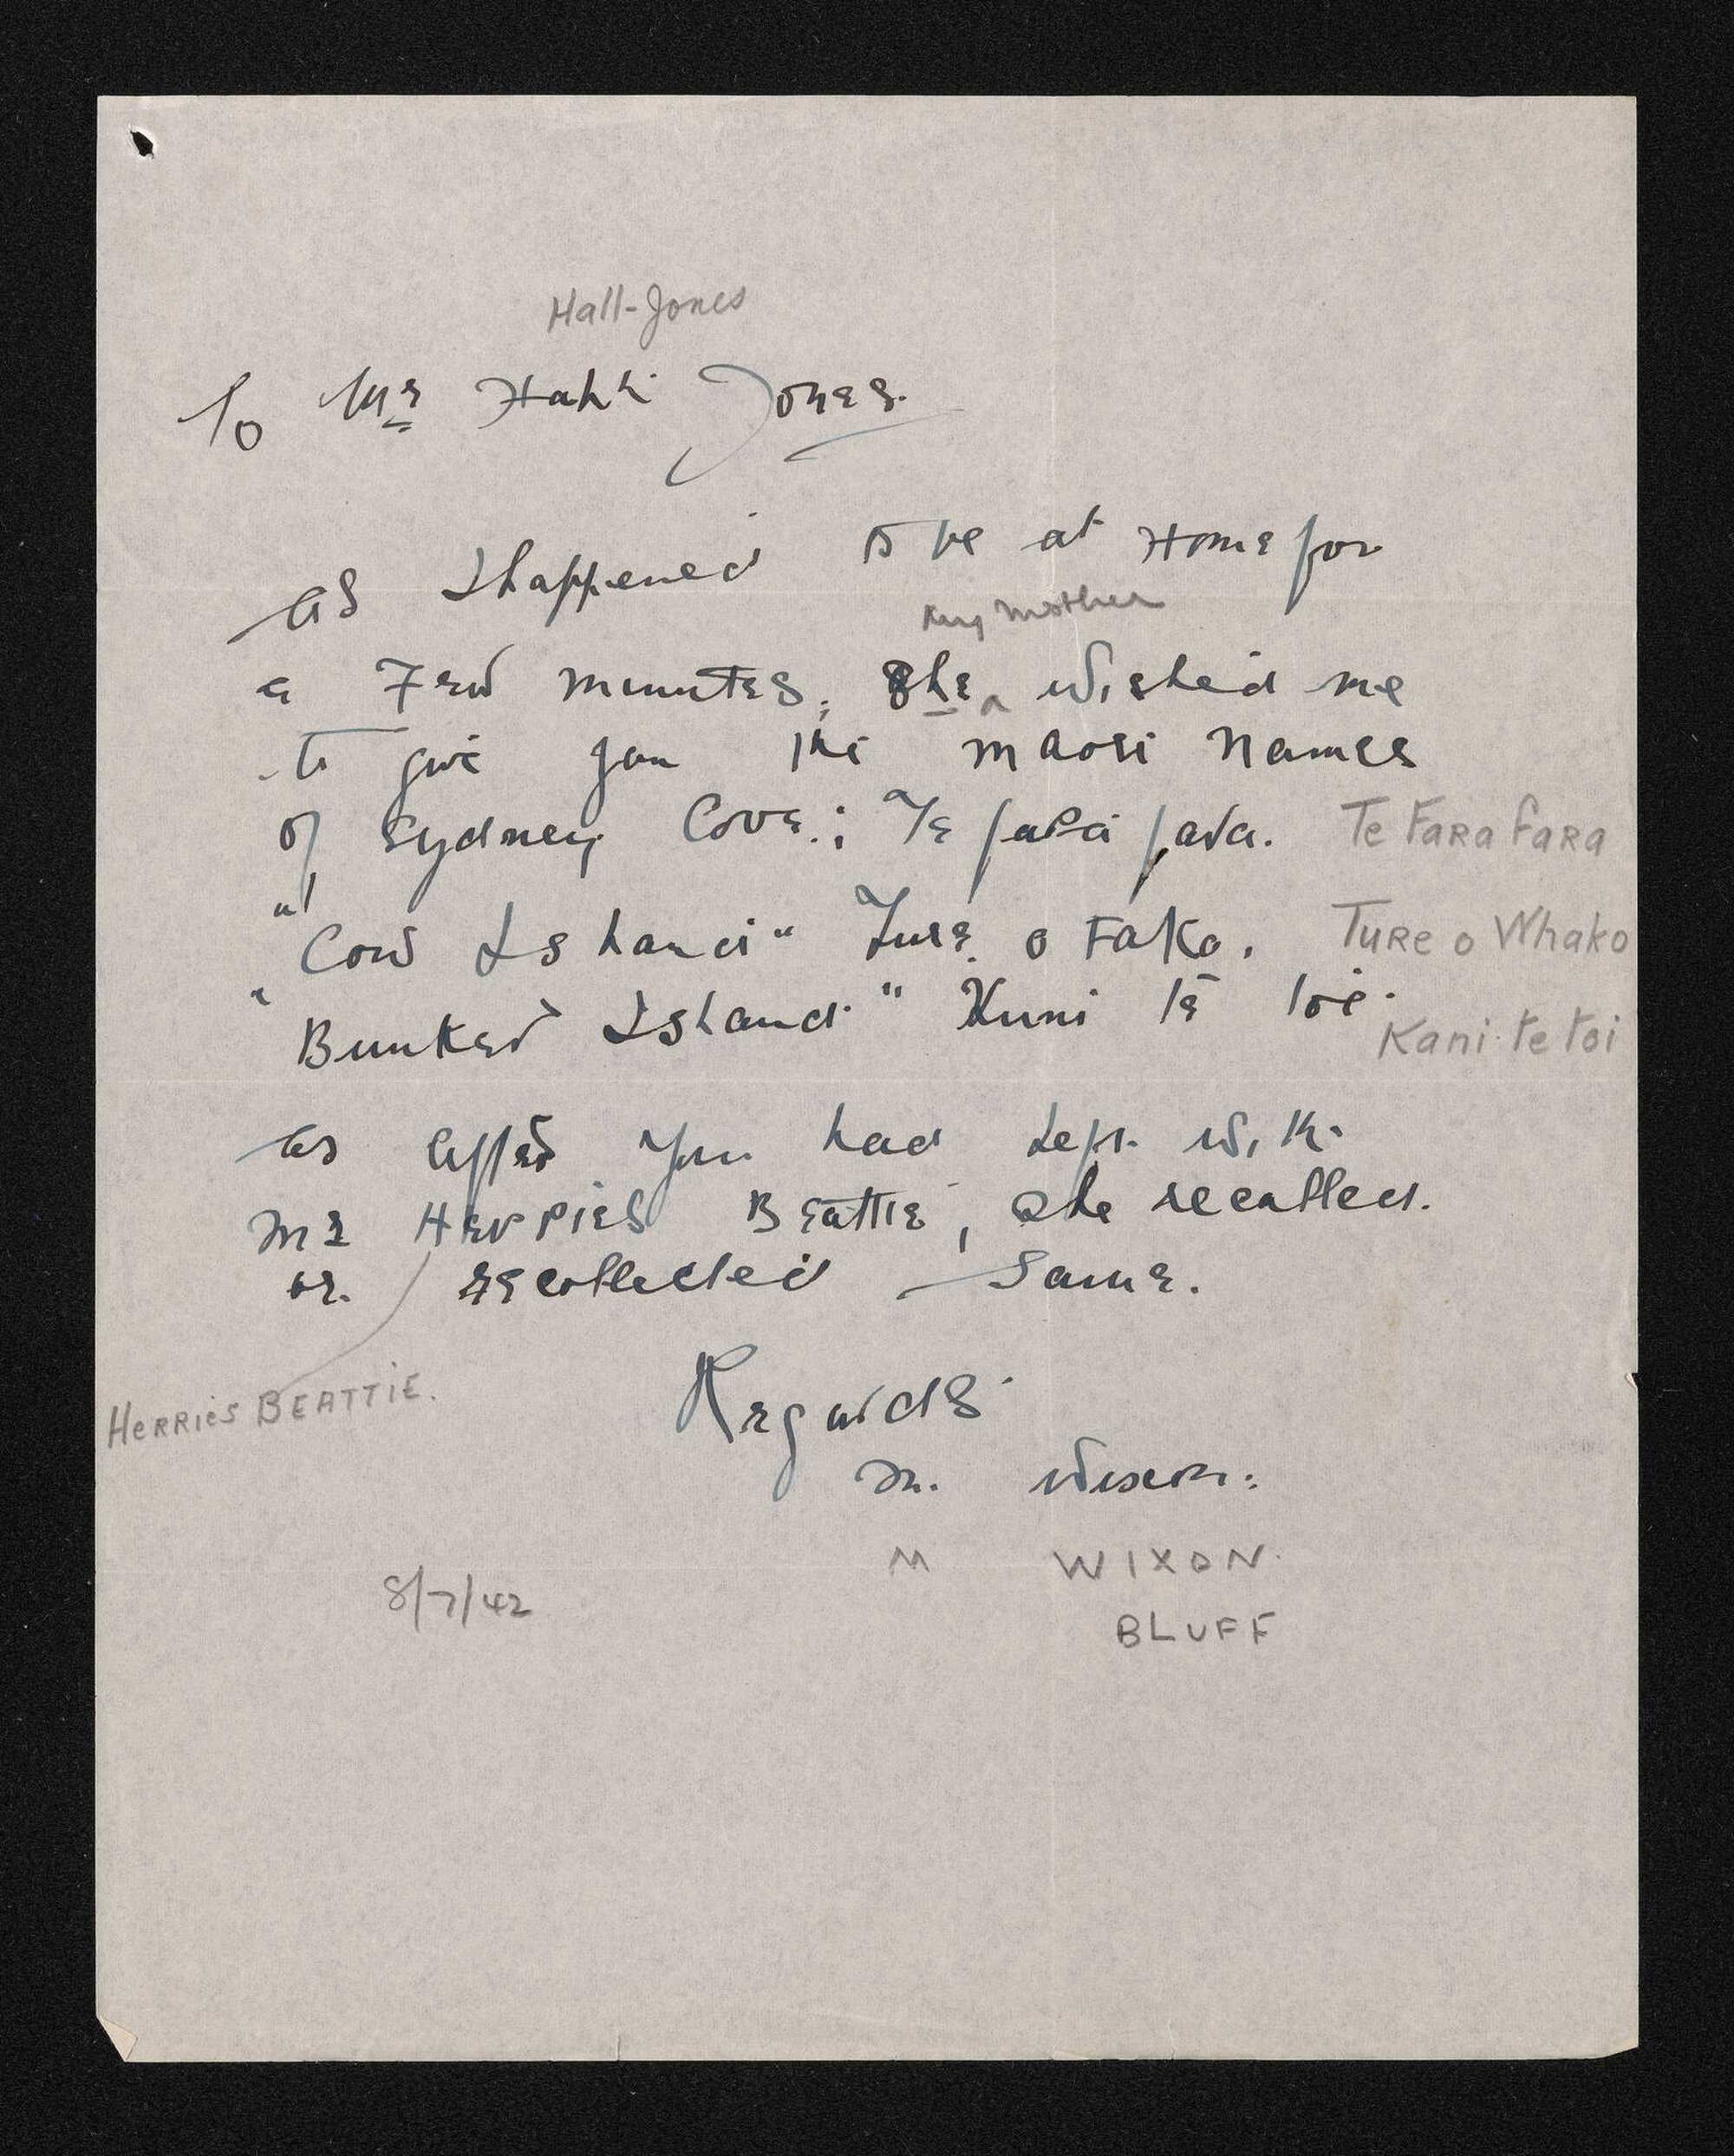 Hall-Jones
To Mr Hall Jones.
as I happened to be at Home for
my mother
a Few minutes, she ^ wished me
to give you the maori names
of Sydney Cove.; Te fara fara. Te Fara fara
"Cow Island" Ture o Fako. Ture o Whako
"Bunker Island" Kuni te toi.
Kani te toi
as after you had left with
Mr Herries Beattie, she recalled.
or. recollected same.
Herries BEATTIE.
Regards
M. Wixon.
M WIXON.
8/7/42
BLUFF